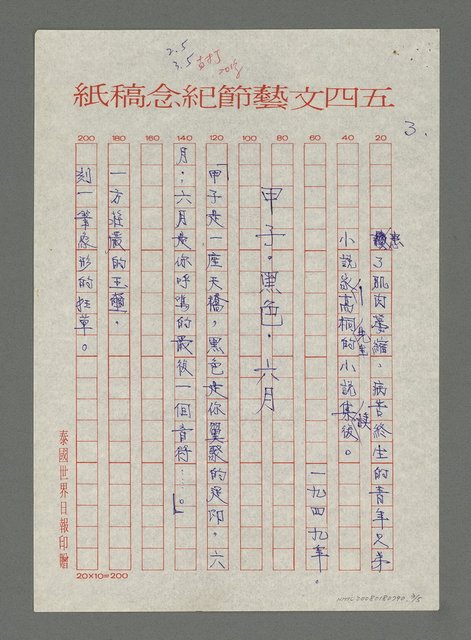 2.5
3.5
3.
五四文藝節紀念稿紙
200 180 160 140 120 100 80 60 40 20
患了肌肉萎縮，病苦終生的青年兄弟
小說家高桐先生的小說集讀後。
一九四九年。
甲子。黑色。六月
「甲子是一座天橋，黑色是你的足印，六
月：六月是你呼的最後一個音符……。」
一方莊嚴的玉璽，
刻一筆原形的狂草。
泰國世界日報印贈
20×10=200